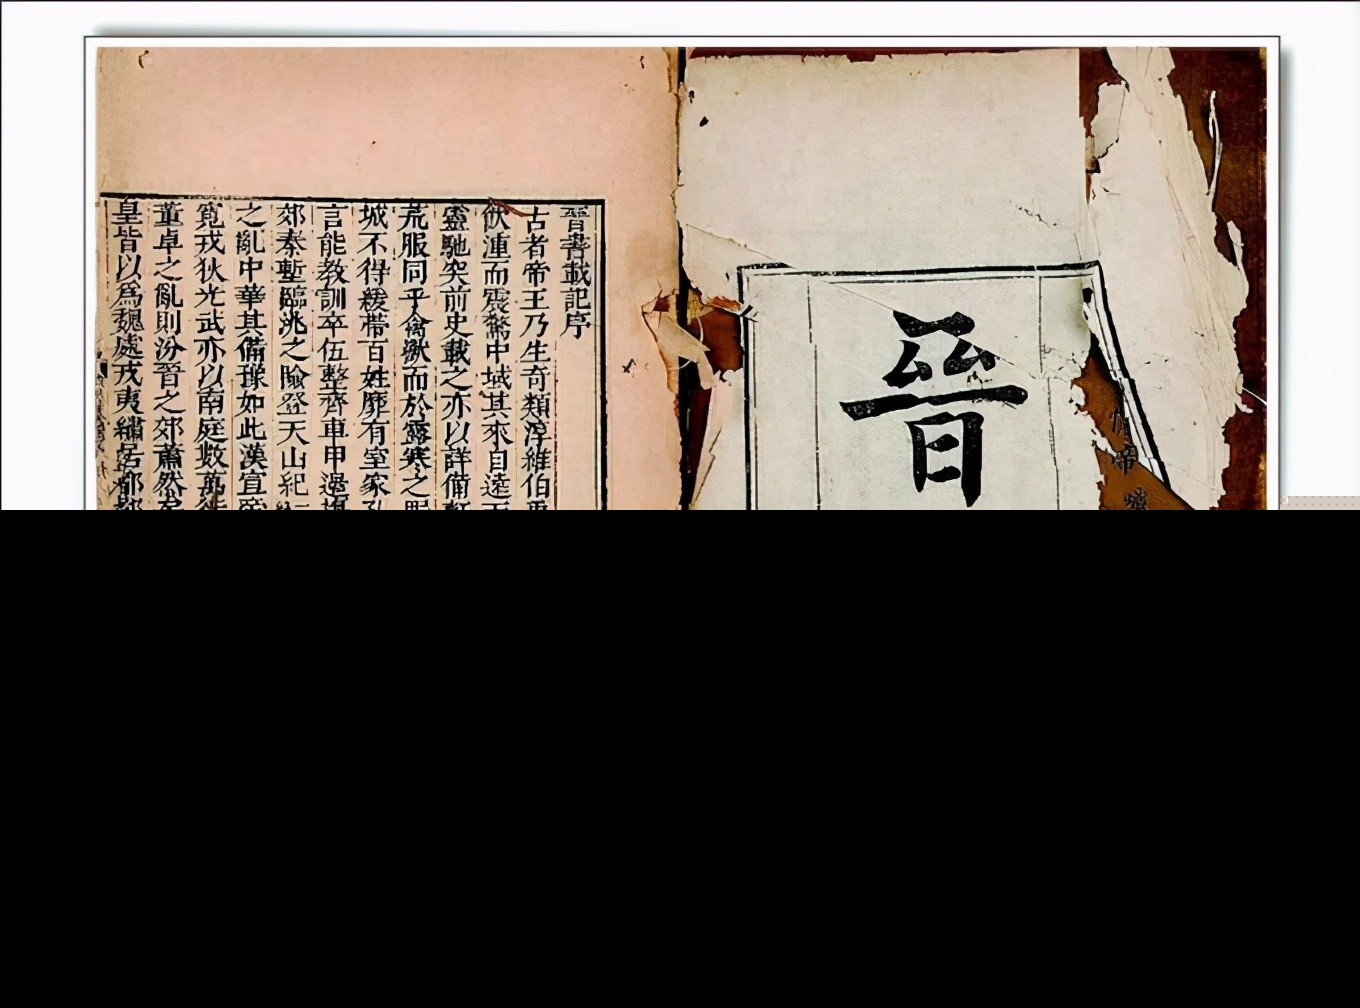 晉
晉書載記序
古者帝王乃生奇類淳維伯
伏湩而震驚中域其來自遠
靈馳突前史載之亦以詳備
荒服同乎禽獸而於露寒之
城不得緩帶百姓靡有室家
言能教訓卒伍整齊車甲邊
郊秦塹臨洮之險登天山紀
之亂中華其備豫如此漢宣
寛戎狄光武亦以南庭數萬
董卓之亂則汾晉之郊蕭然
皇皆以爲魏處戎夷繡居都